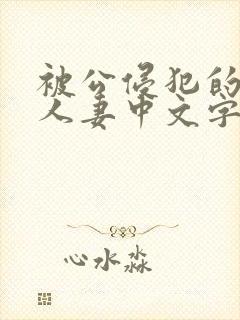 被公侵犯的
人妻中文字
心水淼